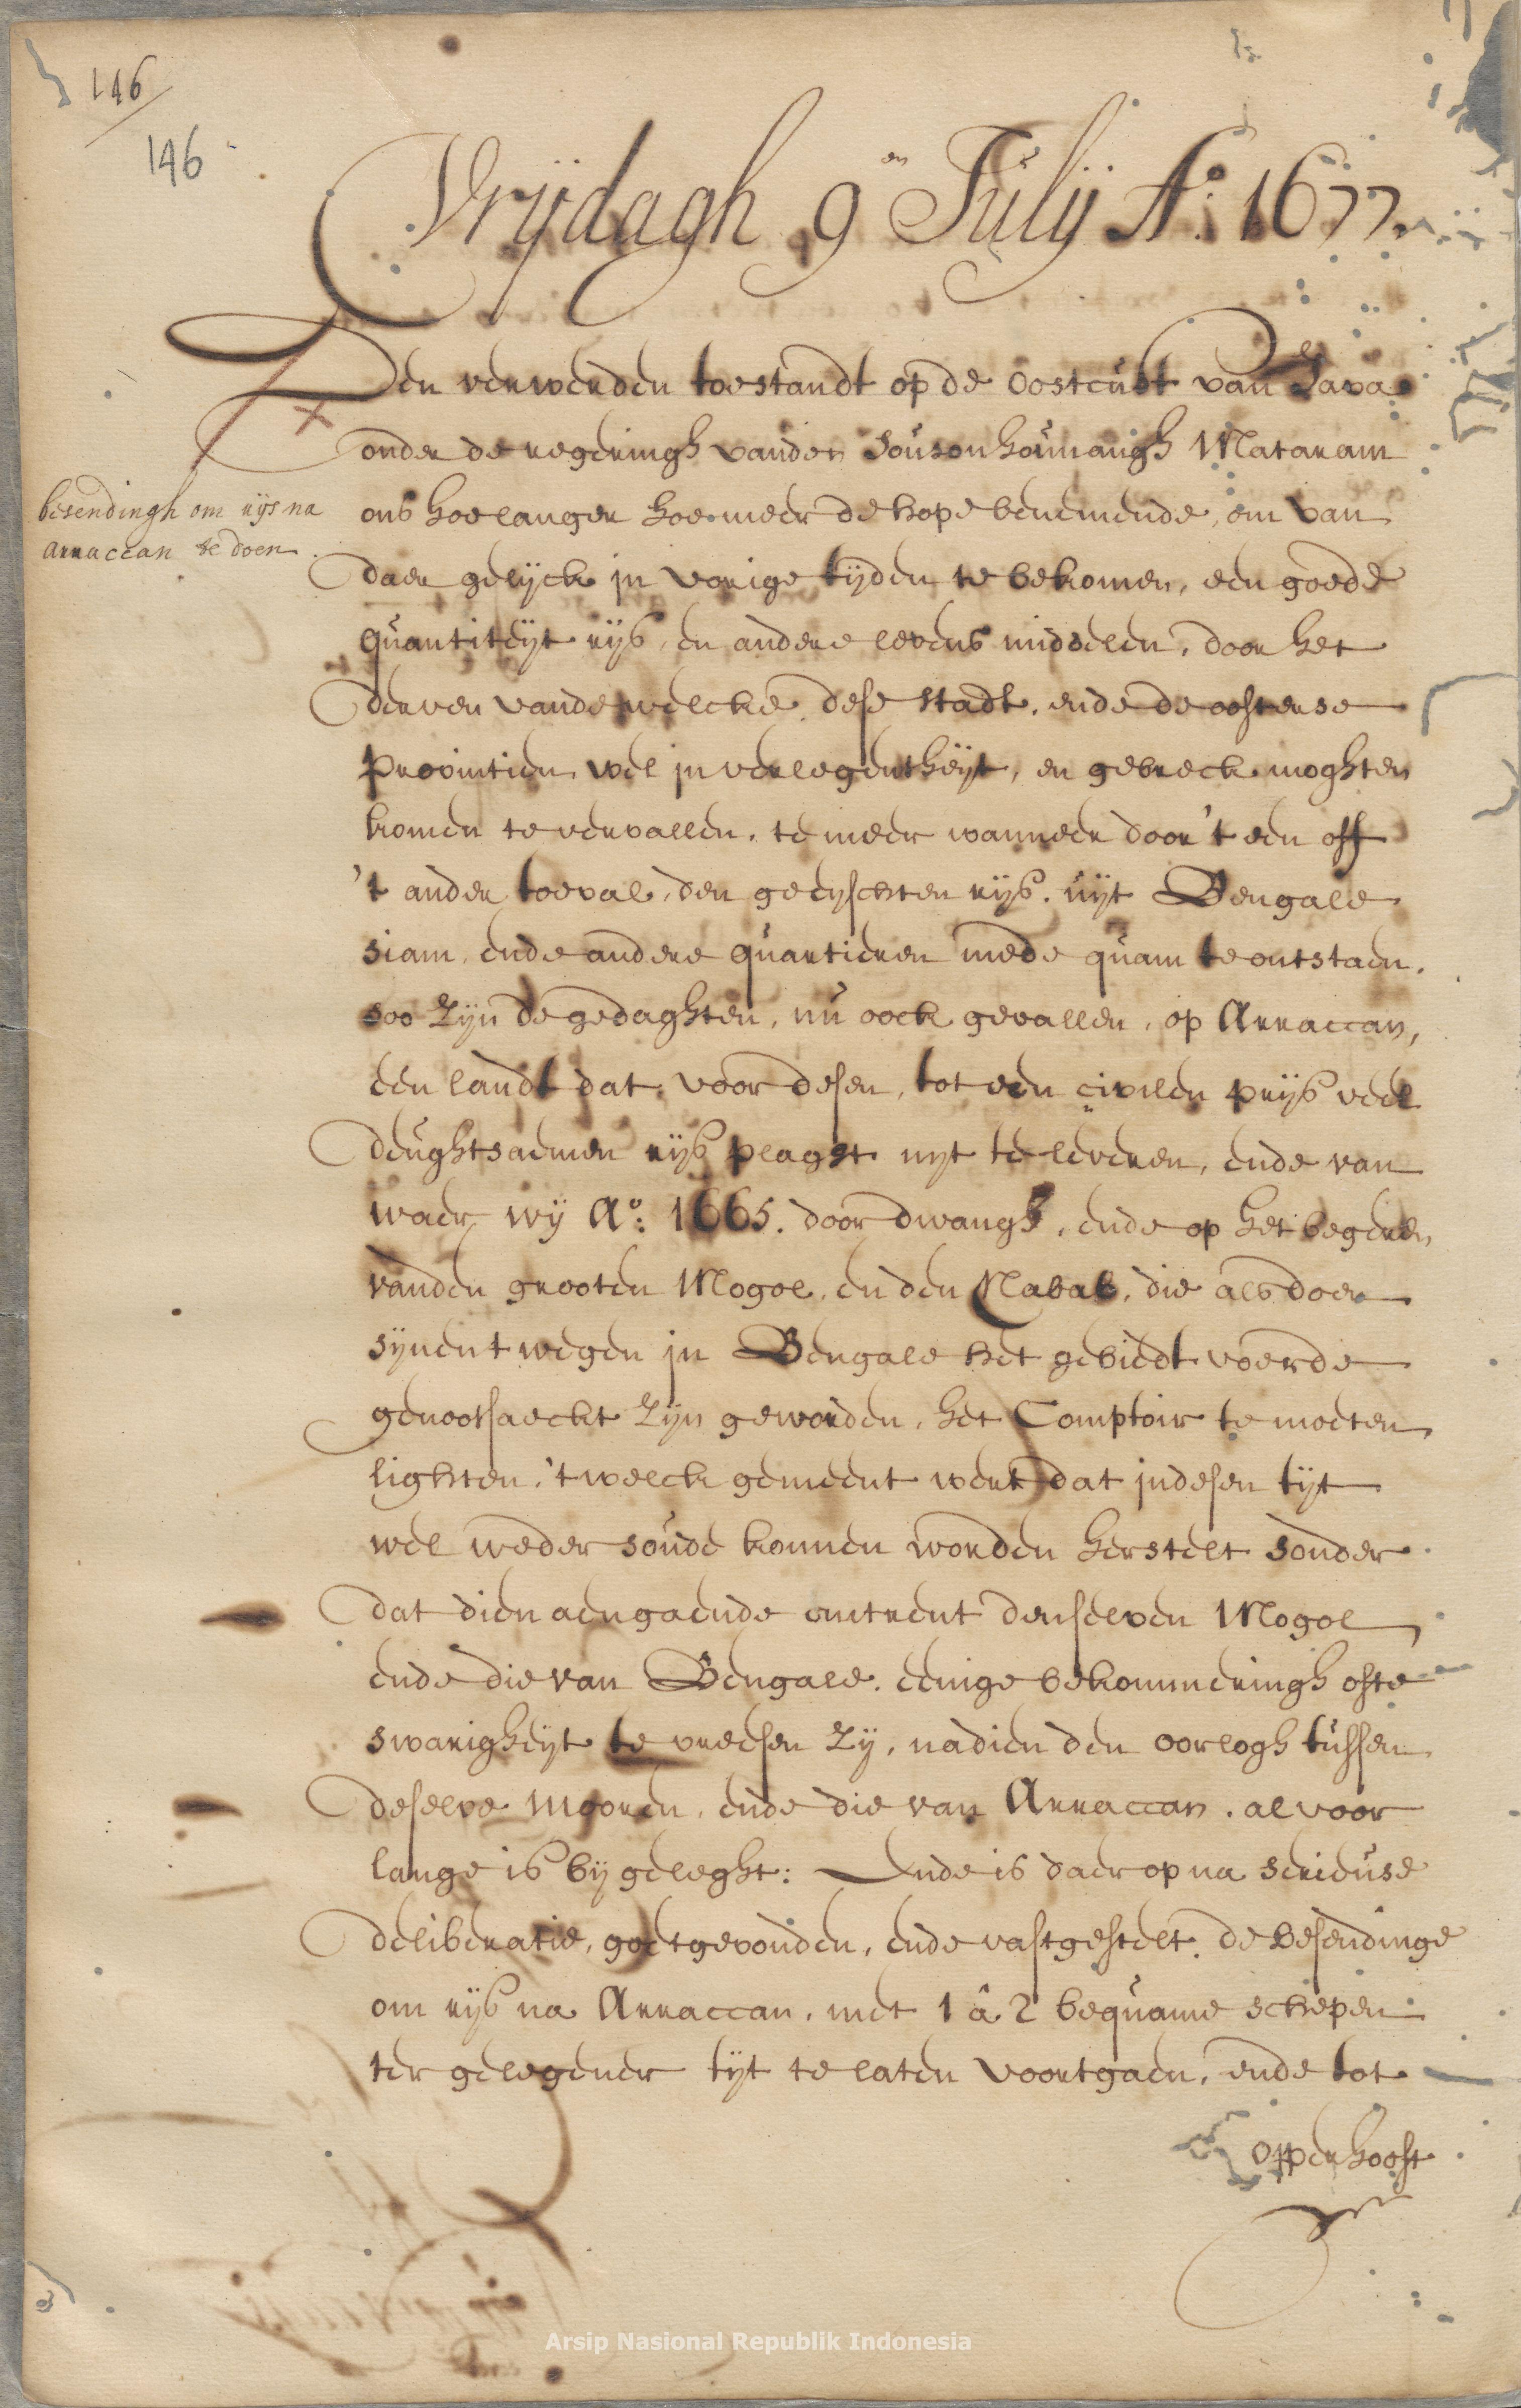 146
146
Vrijdagh 9en Julij Ao. 1677
Den verwerden toestandt op de Oostcust van Java
onder de regeringh vanden Sousouhounangh Mataram
besendingh om rijs na
arraccan te doen
ons hoe langer hoe meer de hope benemende, om van
daer gelijck in vorige tijden te bekomen, een goede
quantiteijt rijs, en andere levens middelen, door het
derven vande welcke, dese stadt, ende de oosterse
provintien wel in verlegentheijt, en gebreck moghten
komen te vervallen, te meer wanneer door 't een off
't ander toeval, den geeijschten rijs, uijt Bengale
Siam, ende andere quartieren mede quam te ontstaen,
soo zijn de gedaghten, nu oock gevallen, op Arraccan,
een landt dat, voor desen, tot een civilen prijs veel
deughtsaemen rijs plaght uijt te leveren, ende van
waer wij Ao: 1665. door dwangh, ende op het begeren
vanden grooten Mogol, en den Nabab, die als doen
sijnent wegen in Bengale het gebiedt voerde
genootsaeckt zijn geworden, het Comptoir te moeten
lighten, 't welck gemeent wert dat in desen tijt
wel weder soude konnen worden herstelt sonder
dat dien aengaende omtrent denselven Mogol
ende die van Bengale, eenige bekommeringh ofte
swarigheijt te vreesen zij, nadien den oorlogh tussen
deselve mooren, ende die van Arraccan, al voor
lange is bij geleght: Ende is daer op na serieuse
deliberatie, goetgevonden, ende vastgestelt, de besendinge
om rijs na Arraccan, met 1 â 2 bequame schepen
ter gelegener tijt te laten voortgaen, ende tot
opperhooft
Arsip Nasional Republik Indonesia